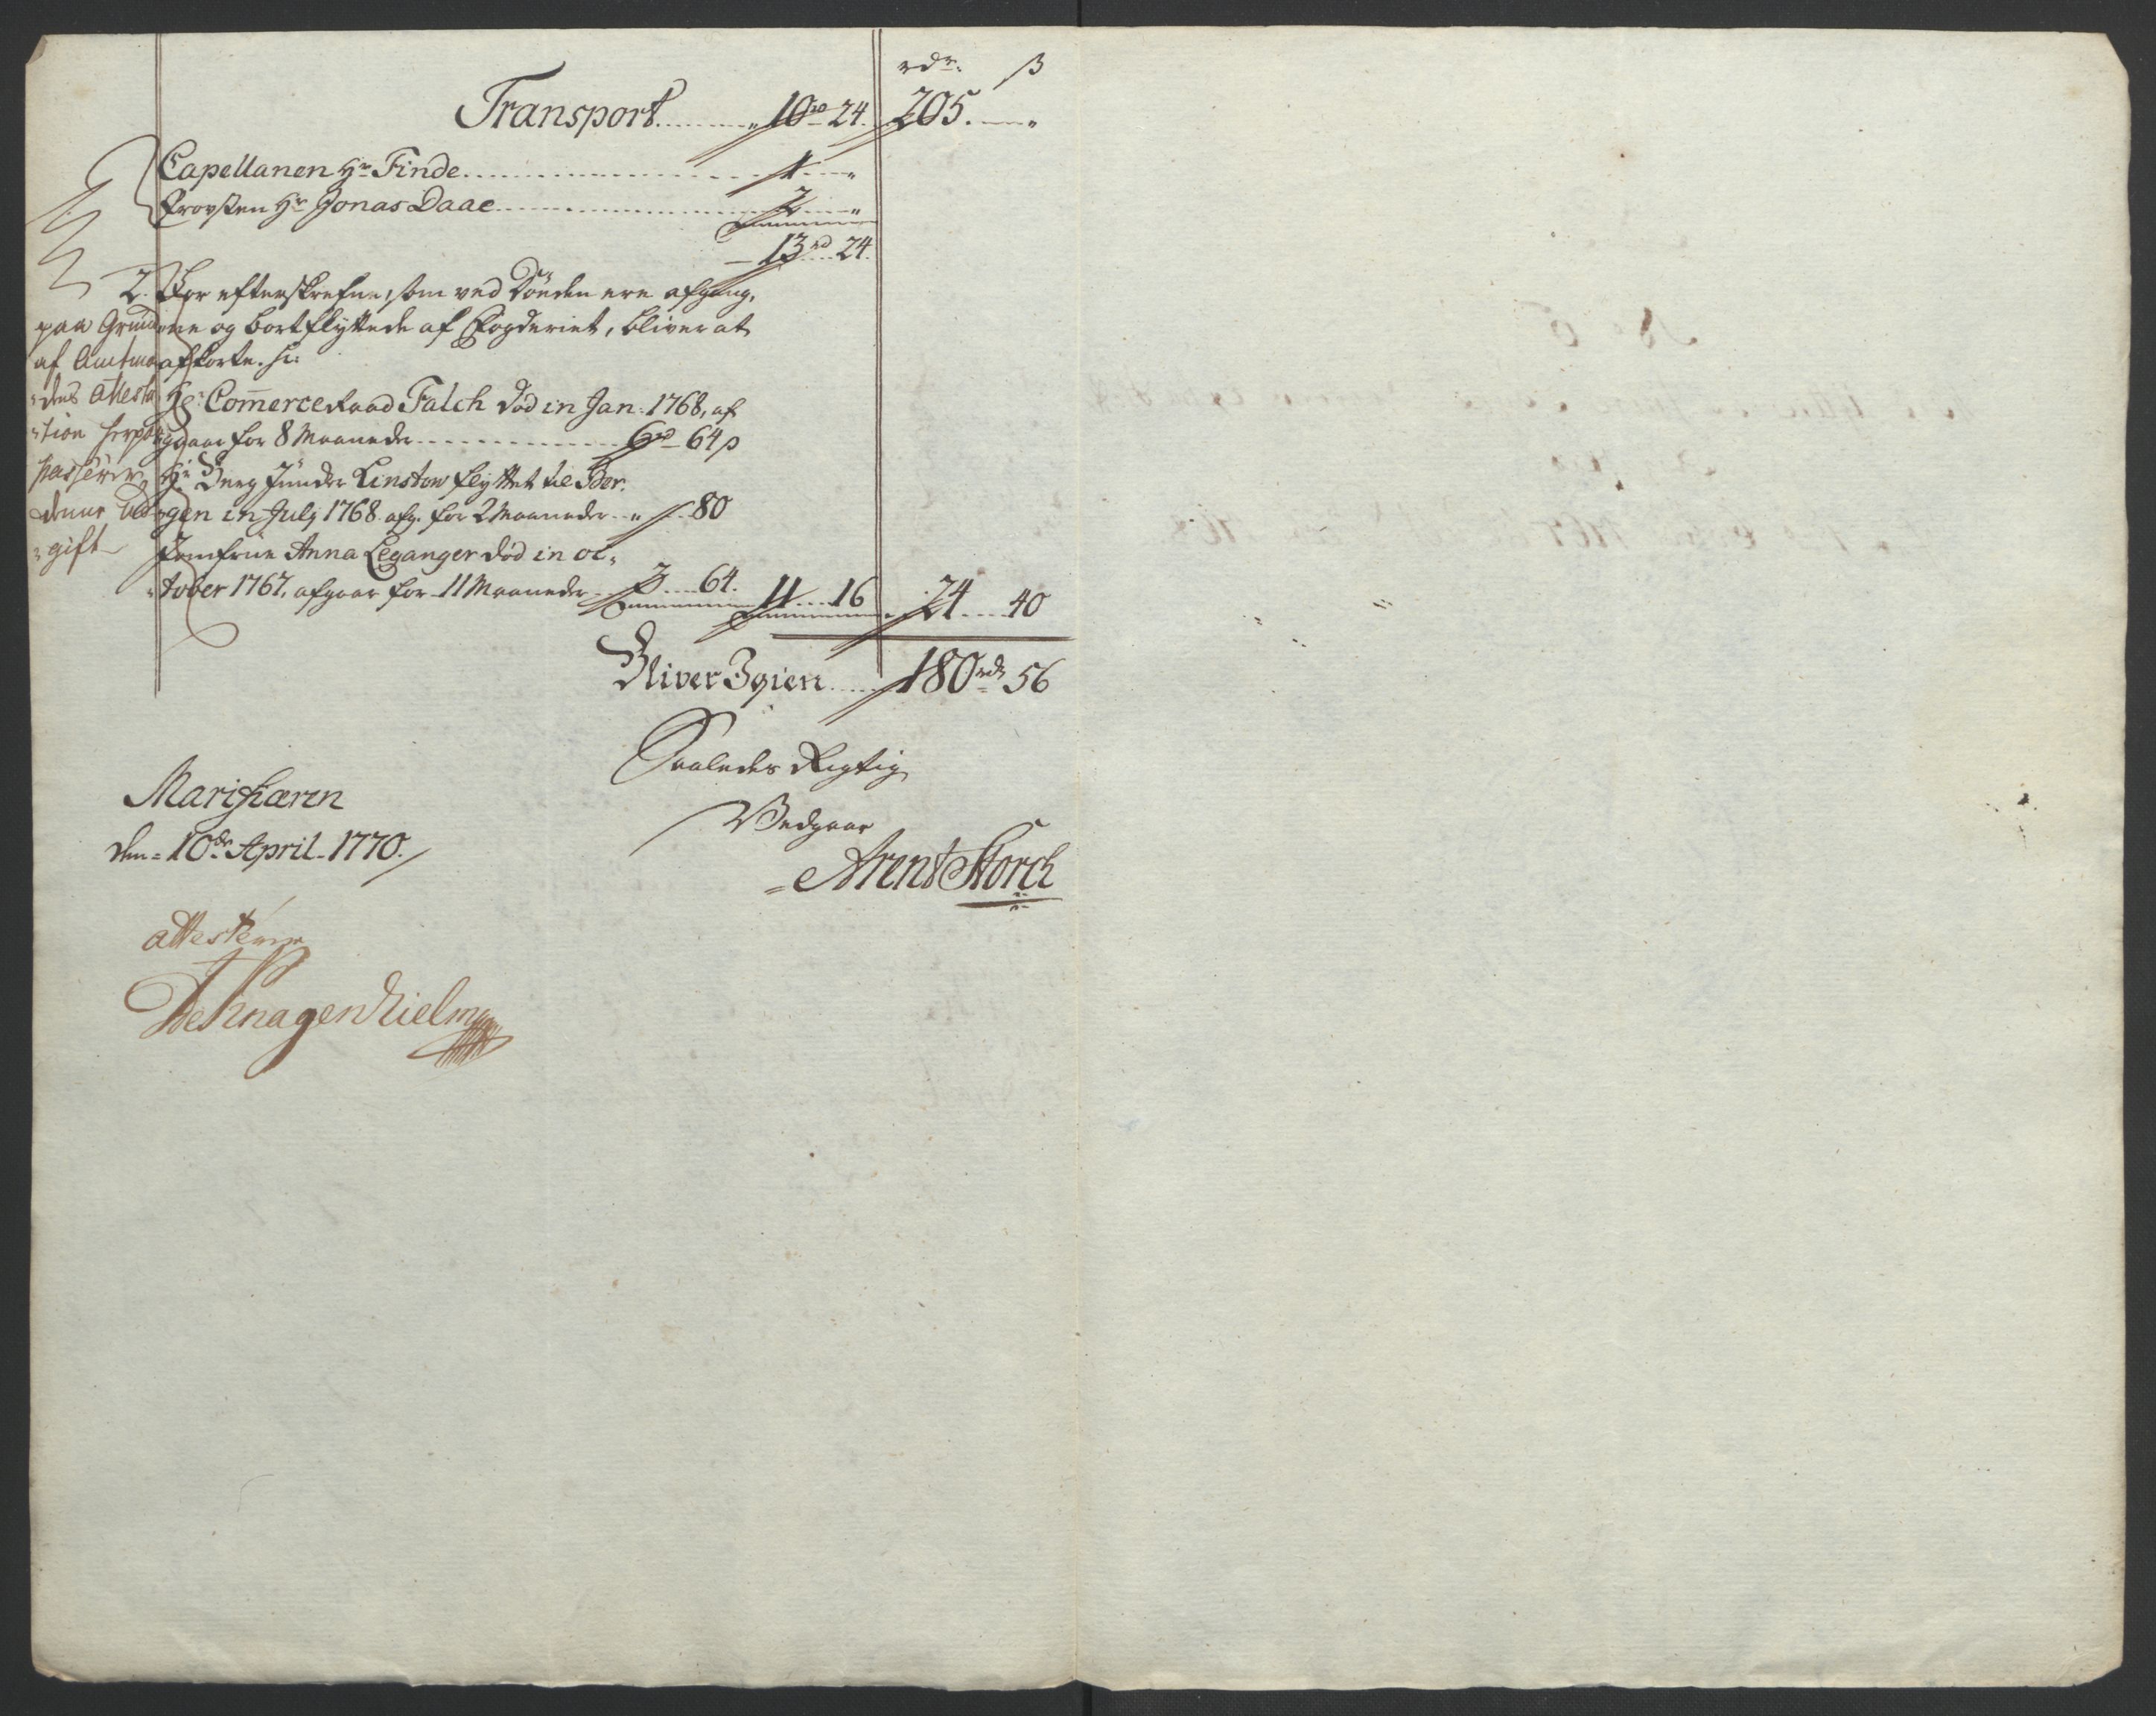 rdr. ß
Transport 10 rd 24. 205. "
Capellanen Hr Finde 1 "
Provsten Hr Jonas Daae 2 "
13 rd 24.
2. For efterskrefne, som ved Döden ere afgang.
ne og bortflyttede af Fogderiet, bliver at
afkorte. Sc:
Hr: Com̄erceRaad Falch død in Jan: 1768, af
gaar for 8 Maaneder 6 rd 64 ß
Hr Berg Junder Linstow flyttet til Ber.
gen in Julj 1768. afg. for 2 Maaneder " 80
Jomfrue Anna Leganger død in oc„
„tober 1767. afgaar for 11 Maaneder 3 64. 11 16 24 40
paa Grund
af Amtman
„dens Attesta
„tion herpaa
passerer
denne Ud
„gift
Bliver Igien 180 rd 56
Saaledes Rigtig
Vedgaar
Arent Storch
Marifiæren
den 10de April 1770.
attesterer
De Knagenhielm